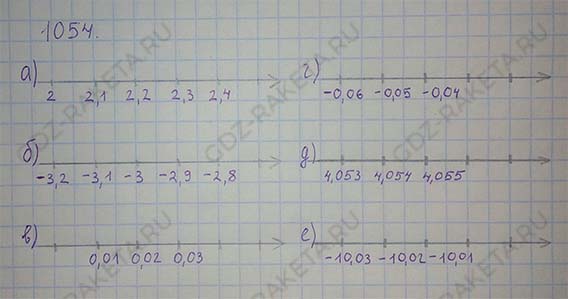 1054.
а)
2 2,1 2,2 2,3 2,4
б)
-3,2 -3,1 -3 -2,9 -2,8
в)
0,01 0,02 0,03
г)
-0,06 -0,05 -0,04
д)
4,053 4,054 4,055
е)
-10,03 -10,02 -10,01
GDZ-RAKETA.RU